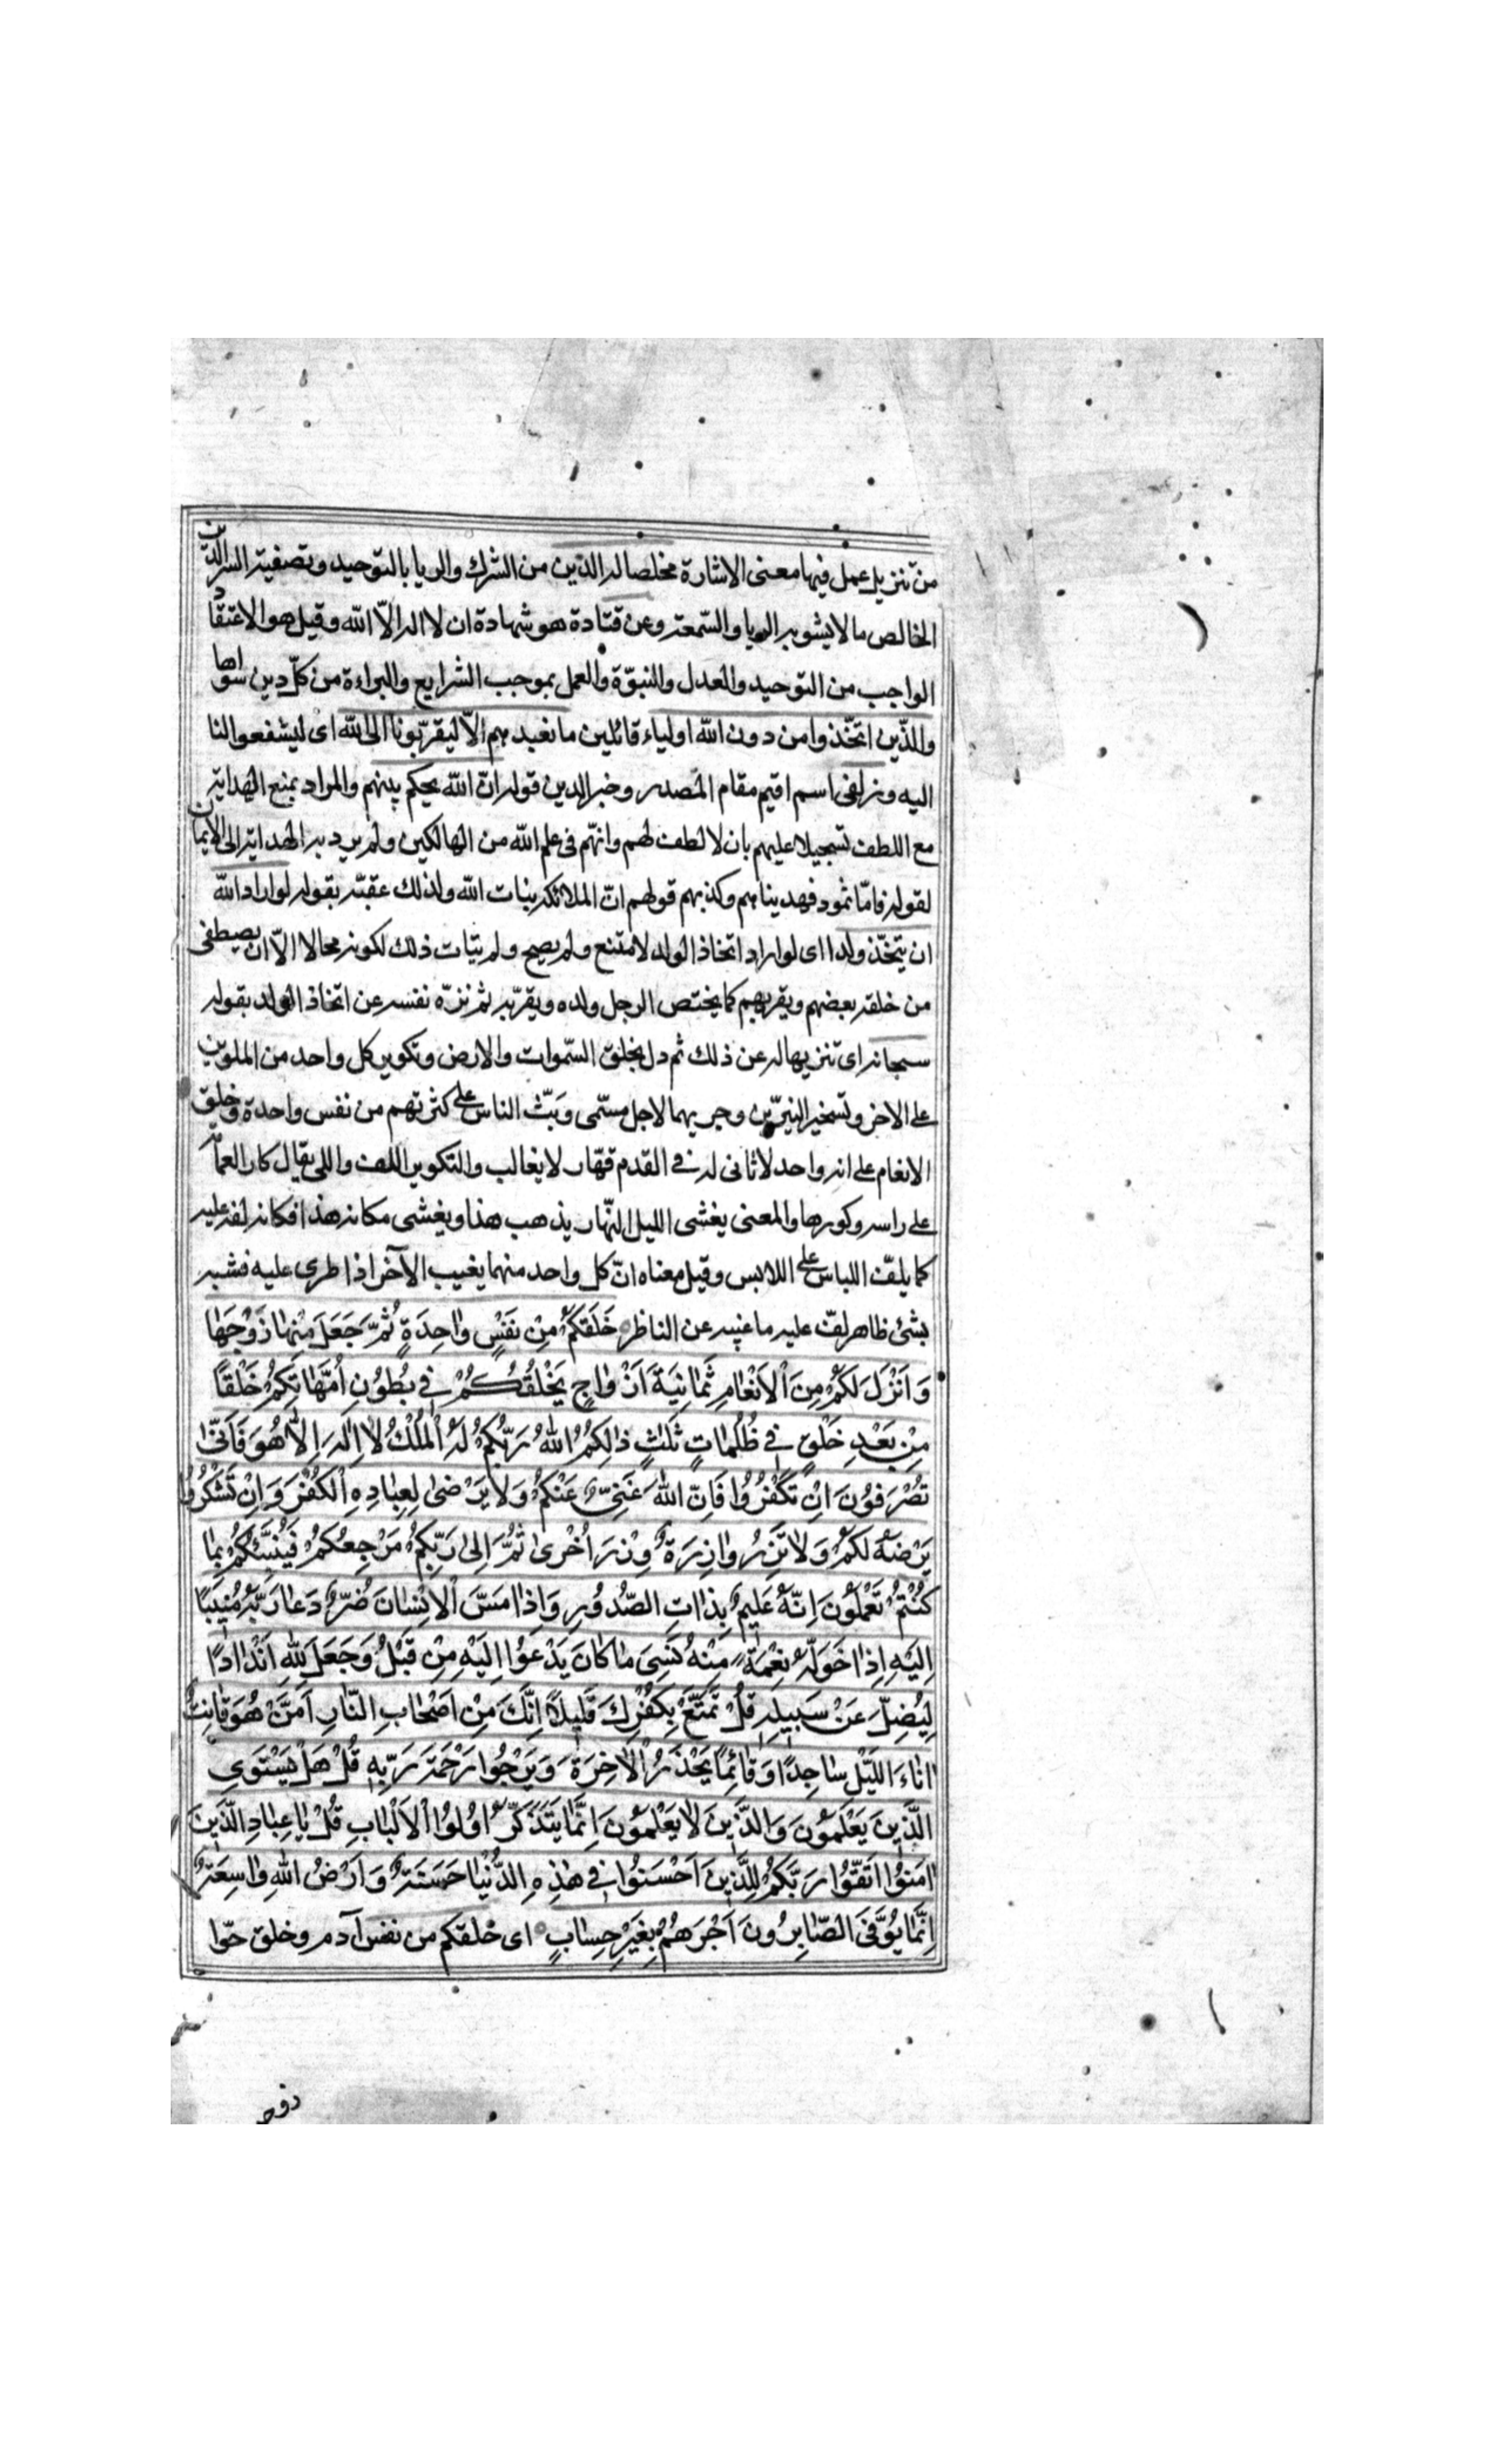 من تنزيل عمل فيها معنى الاشارة مخلصا له الدّين من الشرك والريا بالتوحيد وتصفية السر الدّين
الخالص ما لا يشوبه الريا والسّمعة وعن قتادة هو شهادة ان لا اله الّا الله وقيل هو الاعتقاد
الواجب من التوحيد والعدل والنبوّة والعمل بموجب الشرايع والبراءة من كلّ دين سواها
والذّين اتخّذوا من دون الله اولياء قائلين ما نعبدهم الّا ليقربّونا الى الله اى ليشفعوا لنا
اليه وزلفى اسم اقيم مقام المصدر وخبر الدين قوله انّ الله يحكم بينهم والمراد بمنع الهداية
مع اللطف تسجيلا عليهم بان لا لطف لهم وانهّم فى علم الله من الهالكين ولم يرد به الهداية الى الايمان
لقوله فامّا ثمود فهديناهم وكذبهم قولهم انّ الملائكة بنات الله ولذلك عقبّه بقوله لو اراد الله
ان يتخّذ ولدا اى لو اراد اتخاذ الولد لامتنع ولم يصح ولم يتات ذلك لكونه محالا الّا ان يصطفى
من خلقه بعضهم ويقربهم كما يختص الرجل ولده ويقربّه ثم نزّه نفسه عن اتخاذ الولد بقوله
سبحانه اى تنزيها له عن ذلك ثم دل بخلق السّموات والارض وتكوير كل واحد من الملوين
على الاخر وتسخير النيرّين وجريهما لاجل مسمّى وبَثّ الناس على كثرتهم من نفس واحدة وخلق
الانعام على انه واحد لا ثانى له فى القدم قهّار لا يغالب والتكوير اللف واللى يقال كار العمامة
على راسه وكورها والمعنى يغشى الليل النّهار يذهب هذا ويغشى مكانه هذا فكانه لفه عليه
كما يلفّ اللباس على اللابس وقيل معناه انّ كل واحد منهما يغيب الآخر اذا طرى عليه فشبه
بشئ ظاهر لفّ عليه ما غيبه عن الناظر خَلَقَكُمْ مِنْ نَفْسٍ وٰاحِدَةٍ ثُمَّ جَعَلَ مِنْهٰا زَوْجَهٰا
وَاَنْزَلَ لَكُمْ مِنَ اْلاَنْعٰامِ ثَمٰانِيَةَ اَزْوٰاجٍ يَخْلُقُكُمْ فِي بُطُوُنِ اُمَّهٰاتِكُمْ خَلْقًا
مِنْ بَعْدِ خَلْقٍ فِي ظُلُمٰاتٍ ثَلٰثٍ ذٰلِكُمُ اللّٰهُ رَبُّكُمْ لَهُ اْلمُلْكُ لاٰ اِلٰهَ اِلاّٰ هُوَ فَاَنّٰى
تُصْرَفُوُنَ اِنْ تَكْفُرُوُا فَاِنَّ اللّٰهَ غَنِيٌّ عَنْكُمْ وَلاٰ يَرْضىٰ لِعِبٰادِهِ اْلكُفْرَ وَاِنْ تَشْكُرُوُا
يَرْضَهُ لَكُمْ وَلاٰ تَزِرُ وٰازِرَةٌ وِزْرَ اُخْرىٰ ثُمَّ اِلىٰ رَبِّكُمْ مَرْجِعُكُمْ فَيُنَبِّئُكُمْ بِمٰا
كُنْتُمْ تَعْمَلُوُنَ اِنَّهُ عَلِيمٌ بِذٰاتِ الصُّدُوُرِ وَاِذٰا مَسَّ اْلاِنْسٰانَ ضُرٌّ دَعٰا رَبَّهُ مُنِيبًا
اِلَيْهِ اِذٰا خَوَّلَهُ نِعْمَةً مِنْهُ نَسِيَ مٰا كٰانَ يَدْعُوُا اِلَيْهِ مِنْ قَبْلُ وَجَعَلَ لِلّٰهِ اَنْدٰادًا
لِيُضِلَّ عَنْ سَبِيلِهِ قُلْ تَمَتَّعْ بِكُفْرِكَ قَلِيلًا اِنَّكَ مِنْ اَصْحٰابِ النّٰارِ اَمَّنْ هُوَ قٰانِتٌ
اٰنٰاءَ اللَّيْلِ سٰاجِدًا وَقٰائِمًا يَحْذَرُ اْلاٰخِرَةَ وَيَرْجُوُا رَحْمَةَ رَبِّهِ قُلْ هَلْ يَسْتَوِي
الَّذِينَ يَعْلَمُوُنَ وَالَّذِينَ لاٰ يَعْلَمُوُنَ اِنَّمٰا يَتَذَكَّرُ اوُلُوُا اْلاَلْبٰابِ قُلْ يٰا عِبٰادِ الَّذِينَ
اٰمَنُوُا اتَّقُوُا رَبَّكُمْ لِلَّذِينَ اَحْسَنُوُا فِي هٰذِهِ الدُّنْيٰا حَسَنَةٌ وَاَرْضُ اللّٰهِ وٰاسِعَةٌ
اِنَّمٰا يُوَفَّى الصّٰابِرُونَ اَجْرَهُمْ بِغَيْرِ حِسٰابٍ اى خلقكم من نفس آدم وخلق حوّا